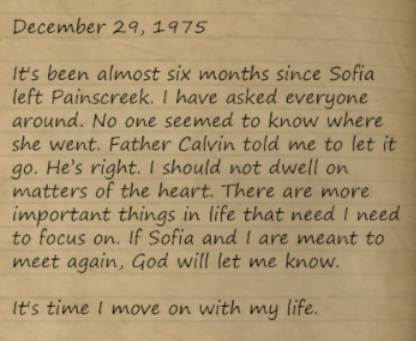 December 29, 1975
It's been almost six months since Sofia
left Painscreek. I have asked everyone
around. No one seemed to know where
she went. Father Calvin told me to let it
go. He's right. I should not dwell on
matters of the heart. There are more
important things in life that need I need
to focus on. If Sofia and I are meant to
meet again, God will let me know.
It's time I move on with my life.